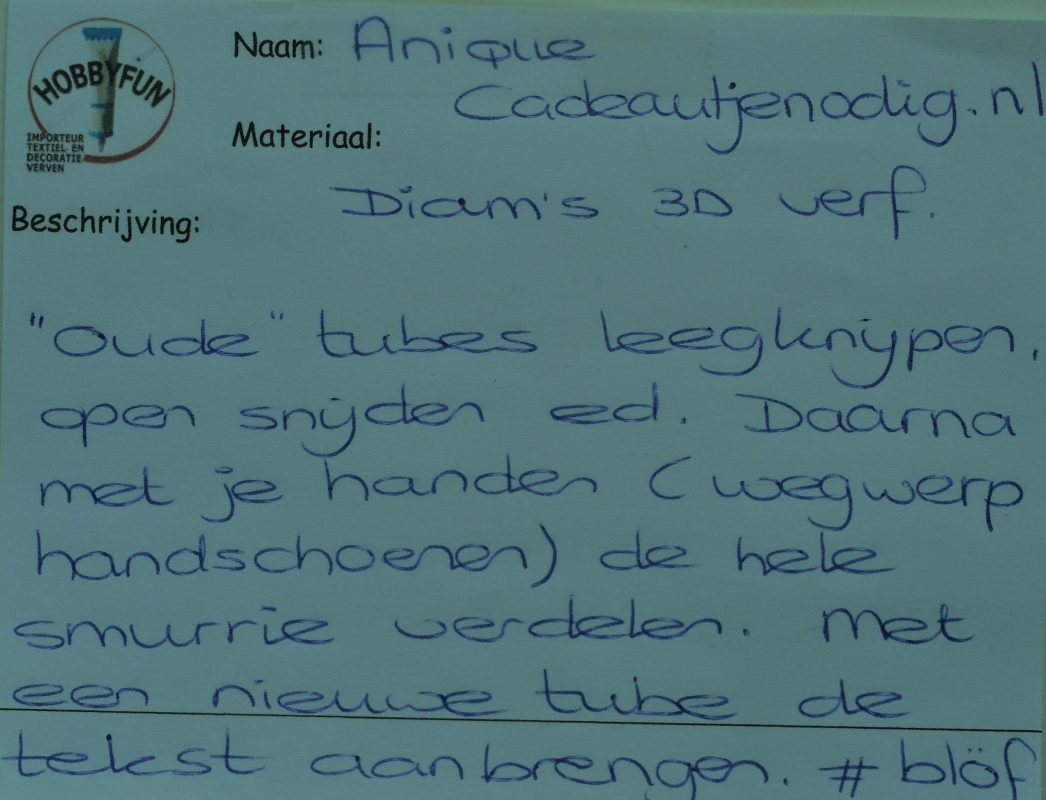 HOBBYFUN
IMPORTEUR
TEXTIEL- EN
DECORATIE-
VERVEN
Naam: Anique
Cadeautjenodig.nl
Materiaal:
Diam's 3D verf.
Beschrijving:
"Oude" tubes leegknijpen,
open snijden ed. Daarna
met je handen (wegwerp
handschoenen) de hele
smurrie verdelen. Met
een nieuwe tube de
tekst aanbrengen. # blöf